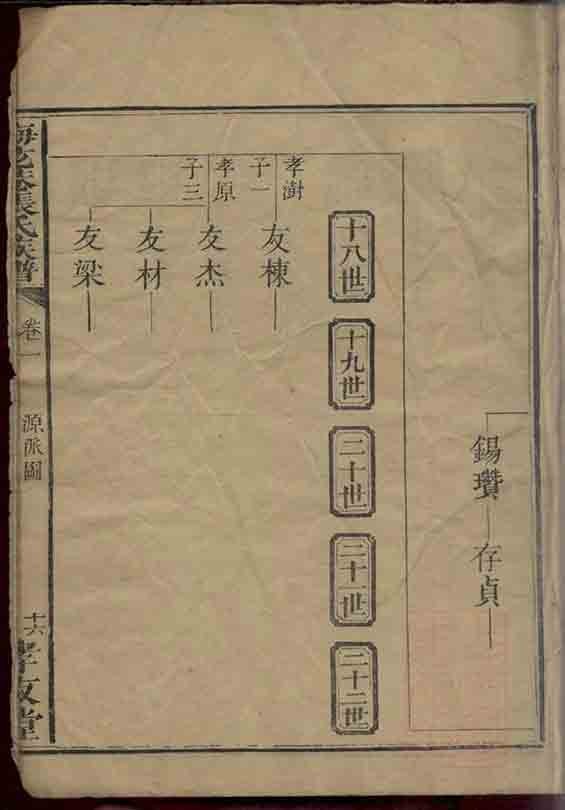 錫瓚
存貞
十八世
十九世
二十世
二十一世
二十二世
孝澍
子一
友棟
孝原
子三
友杰
友材
友梁
張氏族譜
卷一
源派圖
十六
孝友堂